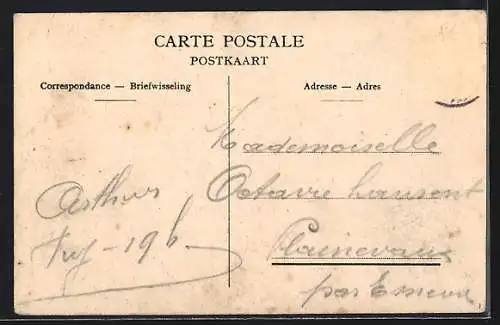 CARTE POSTALE
POSTKAART
Correspondance — Briefwisseling
Adresse — Adres
Mademoiselle
Octavie Laurent
Plainevaux
par Esneux
Arthur